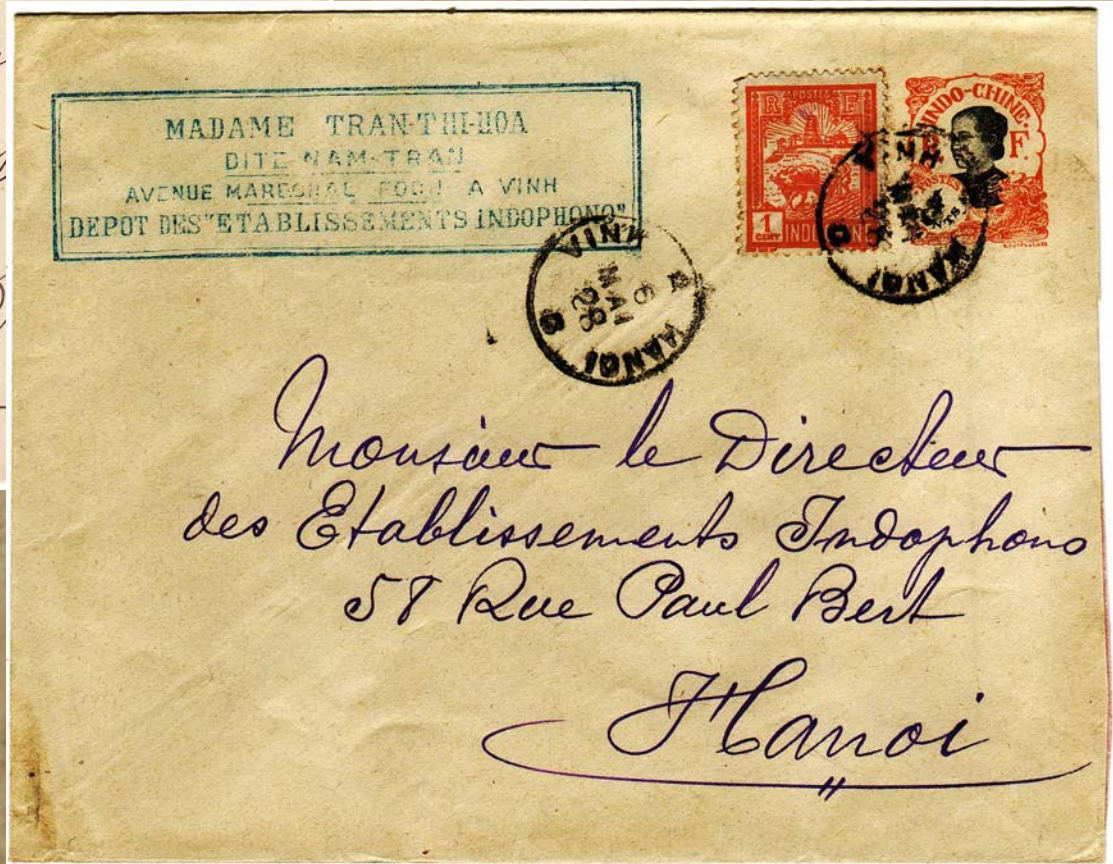 MADAME TRAN-THI-HOA
DITE NAM-TRAN
AVENUE MARECHAL FOCH A VINH
DEPOT DES "ETABLISSEMENTS INDOPHONO"
POSTES
R F
1
CENT
INDOCHINE
INDO-CHINE
R F.
POSTES
VINH
HANOI
VINH
A
6
MAI
28
HANOI
B
Monsieur le Directeur
des Etablissements Indophono
58 Rue Paul Bert
Hanoi